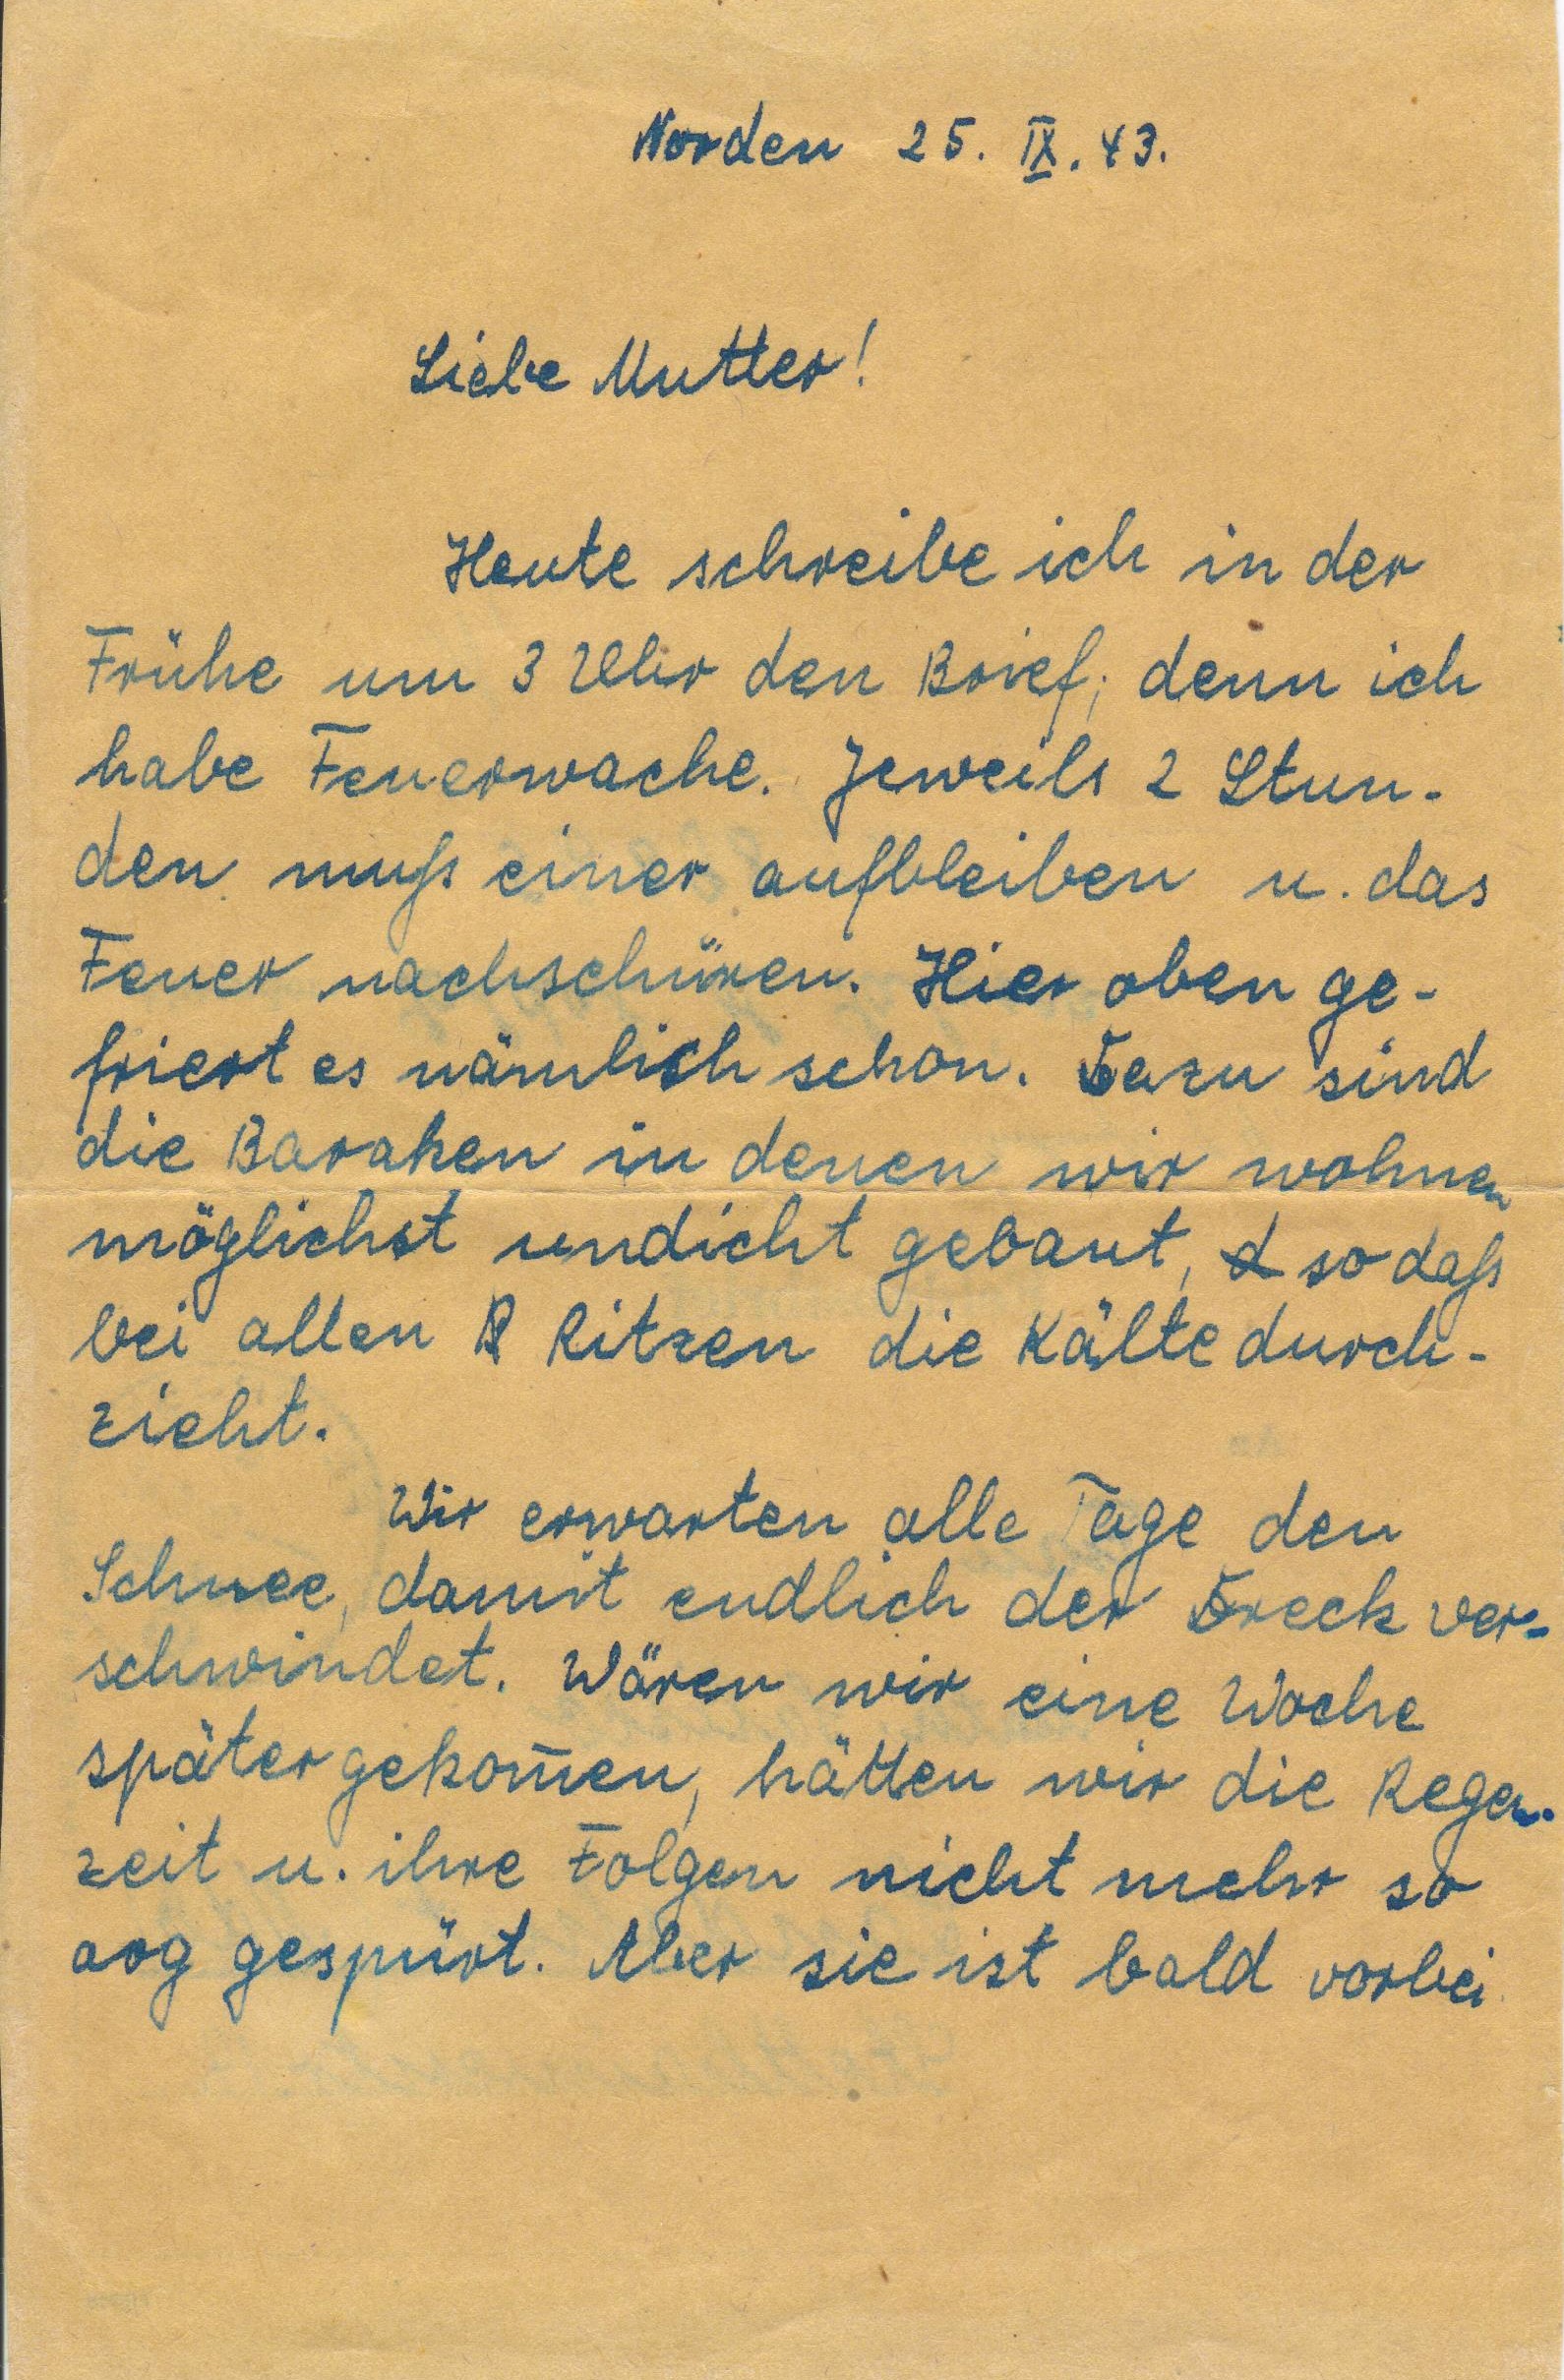 Norden 25. IX. 43.
Liebe Mutter!
Heute schreibe ich in der
Frühe um 3 Uhr den Brief; denn ich
habe Feuerwache. Jeweils 2 Stun-
den muß einer aufbleiben u. das
Feuer nachschüren. Hier oben ge-
friert es nämlich schon. Dazu sind
die Baraken in denen wir wohnen
möglichst undicht gebaut, so daß
bei allen Ritzen die Kälte durch-
zieht.
Wir erwarten alle Tage den
Schnee, damit endlich der Dreck ver-
schwindet. Wären wir eine Woche
später gekom̅en, hätten wir die Regen-
zeit u. ihre Folgen nicht mehr so
arg gespürt. Aber sie ist bald vorbei